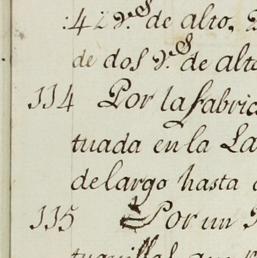 42 v.s de alto,
de dos v.s de alto
114 Por la fabric
tuada en la La
de largo hasta
115 Por un